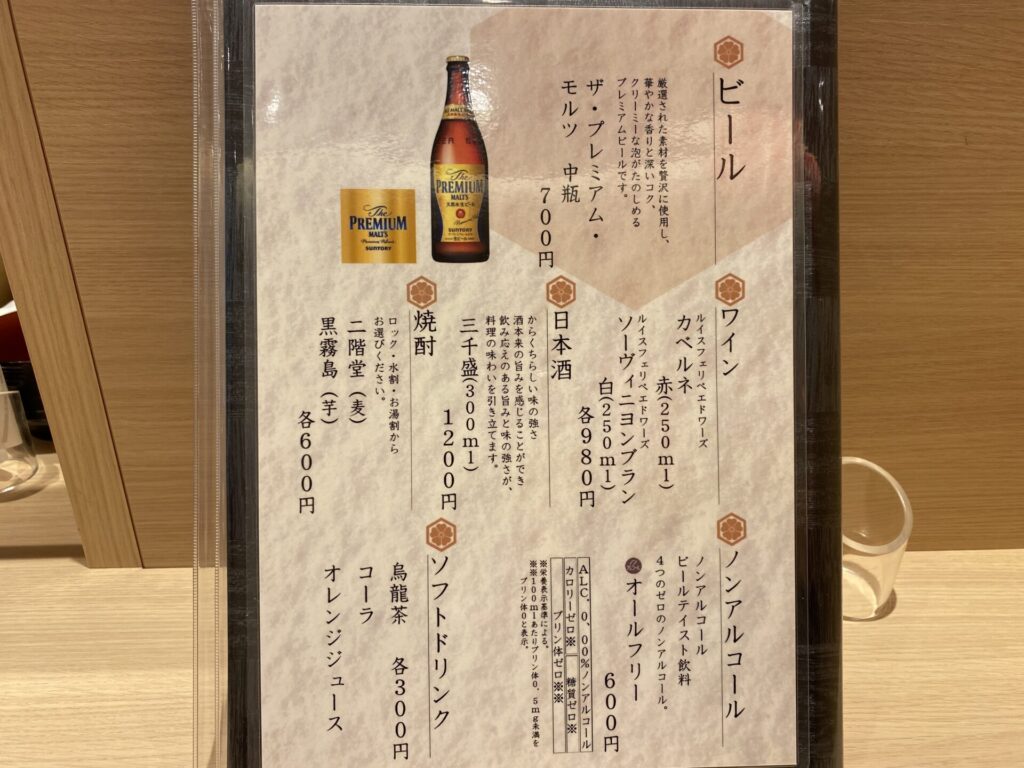 ビール
厳選された素材を贅沢に使用し、
華やかな香りと深いコク、
クリーミーな泡がたのしめる
プレミアムビールです。
ザ・プレミアム・
モルツ 中瓶
700円
The
PREMIUM
MALT'S
SUNTORY
The
PREMIUM
MALT'S
天然水生ビール
SUNTORY
ワイン
ルイスフェリペエドワーズ
カベルネ
赤(250ml)
ルイスフェリペエドワーズ
ソーヴィニヨンブラン
白(250ml)
各980円
日本酒
からくちらしい味の強さ
酒本来の旨みを感じることができ
飲み応えのある旨みと味の強さが、
料理の味わいを引き立てます。
三千盛(300ml)
1200円
焼酎
ロック・水割・お湯割から
お選びください。
二階堂(麦)
黒霧島(芋)
各600円
ノンアルコール
ノンアルコール
ビールテイスト飲料
4つのゼロのノンアルコール。
オールフリー
600円
ALC.0.00%ノンアルコール
カロリーゼロ※ 糖質ゼロ※
プリン体ゼロ※※
※栄養表示基準による。
※※100mlあたりプリン体0.5mg未満を
プリン体0と表示。
ソフトドリンク
烏龍茶 各300円
コーラ
オレンジジュース